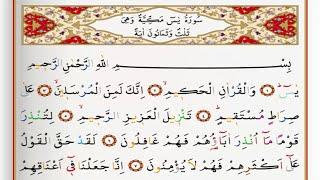 سُورَةُ يٰسٓ مَكِّيَّةٌ وَهِيَ
ثَلٰثٌ وَثَمَانُونَ اٰيَةً
بِسْمِ اللّٰهِ الرَّحْمٰنِ الرَّحِيمِ
يٰسٓ ﴿١﴾ وَالْقُرْاٰنِ الْحَكِيمِ ﴿٢﴾ اِنَّكَ لَمِنَ الْمُرْسَلِينَ ﴿٣﴾ عَلٰى
صِرَاطٍ مُسْتَقِيمٍ ﴿٤﴾ تَنْزِيلَ الْعَزِيزِ الرَّحِيمِ ﴿٥﴾ لِتُنْذِرَ
قَوْمًا مَٓا اُنْذِرَ اٰبَٓاؤُ۬هُمْ فَهُمْ غَافِلُونَ ﴿٦﴾ لَقَدْ حَقَّ الْقَوْلُ
عَلٰٓى اَكْثَرِهِمْ فَهُمْ لَا يُؤْمِنُونَ ﴿٧﴾ اِنَّا جَعَلْنَا فِٓى اَعْنَاقِهِمْ